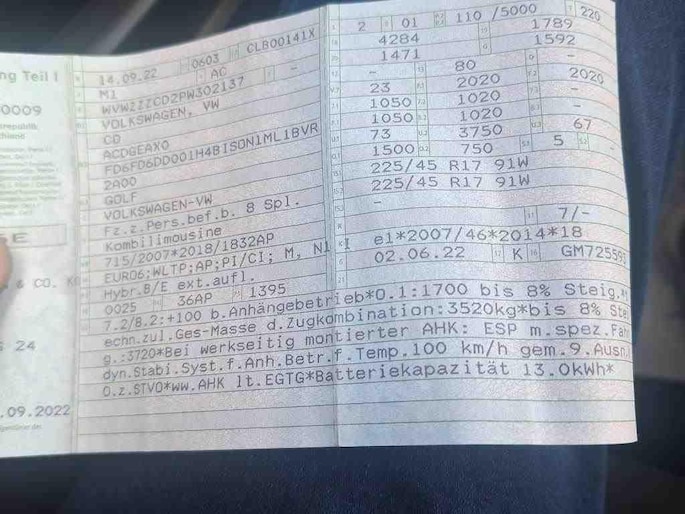 ng Teil I
0009
republik
SE
& CO. K
S 24
.09.2022
14.09.22 0603 CLB00141X
M1 AC -
WVWZZZCD2PW302137
VOLKSWAGEN, VW
CD
ACDGEAX0
FD6FD6DD001H4BISON1ML1BVR
2A00
GOLF
VOLKSWAGEN-VW
Fz.z.Pers.bef.b. 8 Spl.
Kombilimousine
715/2007*2018/1832AP
EURO6;WLTP;AP;PI/CI; M, N1 I
Hybr.B/E ext.aufl.
0025 36AP 1395
2 01 110 /5000 220
4284 1789
1471 1592
- 80 -
23 2020 2020
1050 1020 -
1050 1020 -
73 3750 67
1500 750 5 -
225/45 R17 91W
225/45 R17 91W
-
7/-
e1*2007/46*2014*18
02.06.22 K GM72559
7.2/8.2:+100 b.Anhängebetrieb*O.1:1700 bis 8% Steig.*
echn.zul.Ges-Masse d.Zugkombination:3520kg*bis 8% Ste
g.:3720*Bei werkseitig montierter AHK: ESP m.spez.Fah
dyn.Stabi.Syst.f.Anh.Betr.f.Temp.100 km/h gem.9.Ausn.
O.z.STVO*ww.AHK lt.EGTG*Batteriekapazität 13.0kWh*